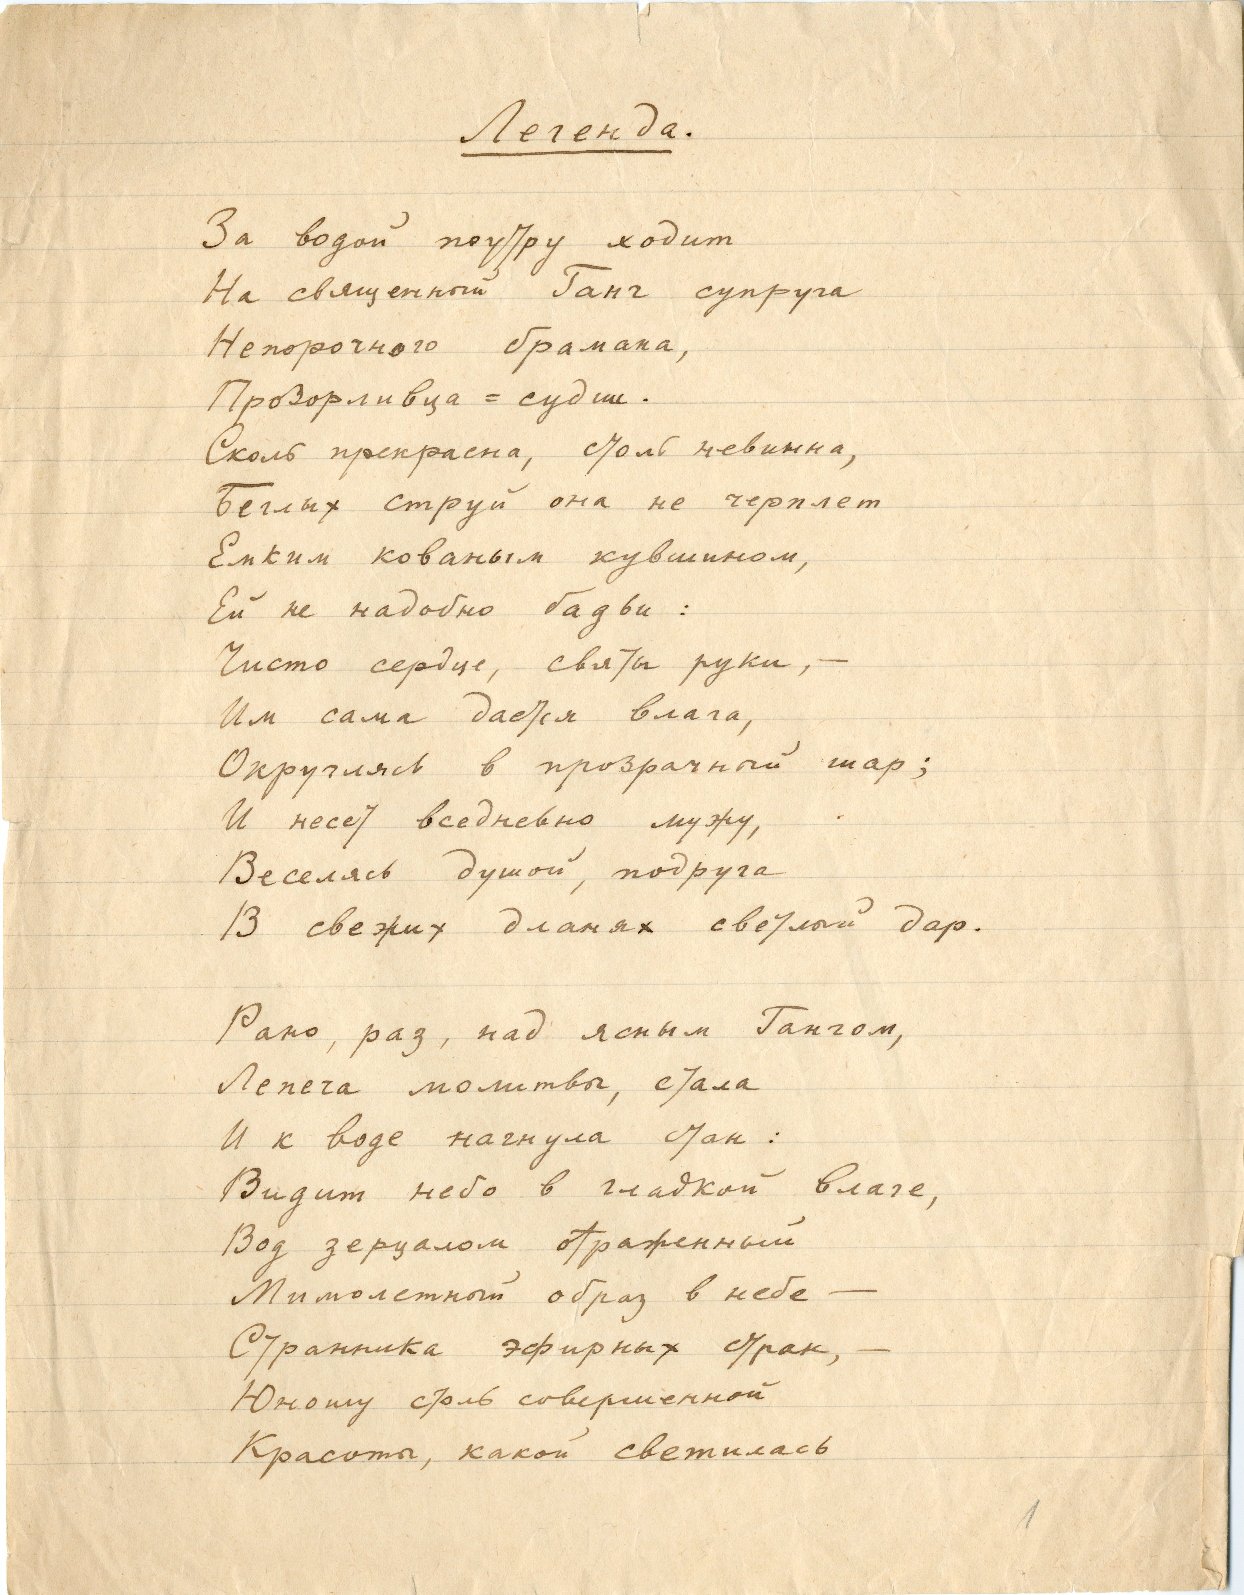 Легенда.
За водой поутру ходит
На священный Ганг супруга
Непорочного брамана,
Прозорливца = судии.
Сколь прекрасна, столь невинна,
Беглых струй она не черплет
Емким кованым кувшином,
Ей не надобно бадьи:
Чисто сердце, святы руки, —
Им сама дастся влага,
Округлясь в прозрачный шар;
И несет вседневно мужу,
Веселясь душой, подруга
В свежих дланях светлый дар.
Рано, раз, над ясным Гангом,
Лепеча молитвы, стала
И к воде нагнула стан:
Видит небо в гладкой влаге,
Вод зерцалом отраженный
Мимолетный образ в небе —
Странника эфирных стран, —
Юношу столь совершенной
Красоты, какой светилась
1